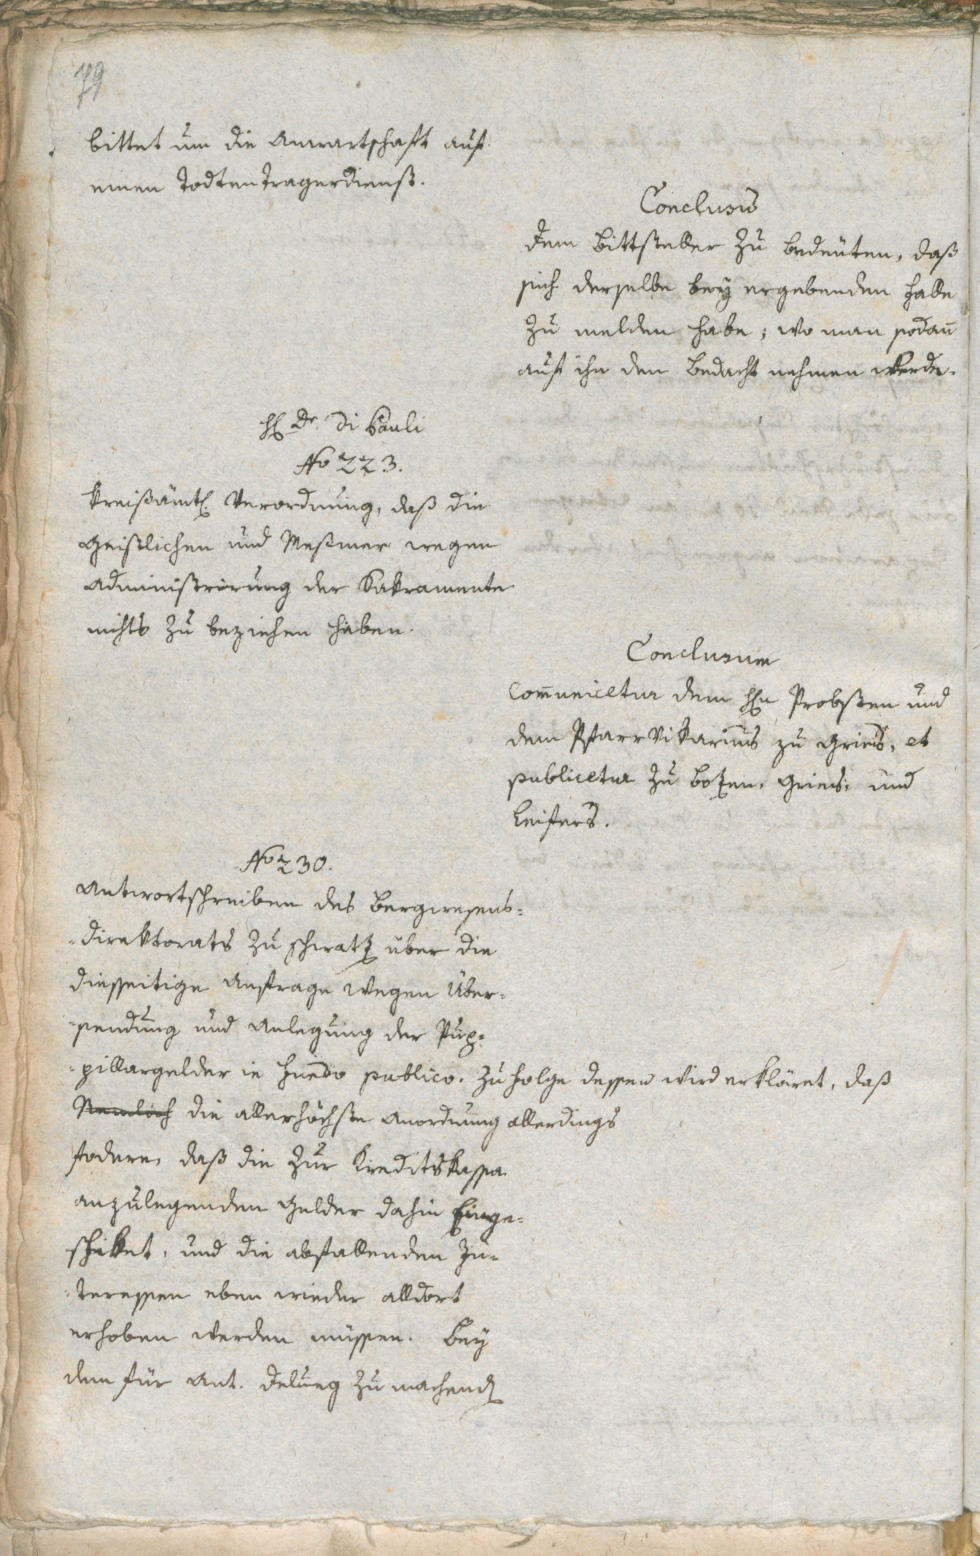 79
bittet um die Anwartschaft auf
einen Todtentragerdienst.
Conclusum
Dem Bittsteller zu bedeuten, daß
sich derselbe bey ergebenden Falle
zu melden habe; wo man sodañ
auf ihn den Bedacht nehmen werde.
H. Dr. Di Pauli
No 223.
Kreisämtl. Verordnung, daß die
Geistlichen und Meßmer wegen
Administrirung der Sakramente
nichts zu beziehen haben.
Conclusum
Com̃unicetur dem H. Probsten und
dem Pfarr Vikarius zu Gries, et
publicetur zu Botzen, Gries, und
Leifers.
No 230.
Antwortschreiben des Bergwesens-
-direktorats zu Schwatz über die
diesseitige Anfrage wegen Über-
-sendung und Anlegung der Pup-
-pillargelder in Fundo publico. Zufolge dessen wird erkläret, daß
Nemlich die allerhöchste Anordnung allerdings
fodere, daß die zur Kreditskassa
anzulegenden Gelder dahin Einge-
schikket, und die abfallenden In-
-teressen eben wieder alldort
erhoben werden müssen. Bey
dem für Ant. Delueg zu machend